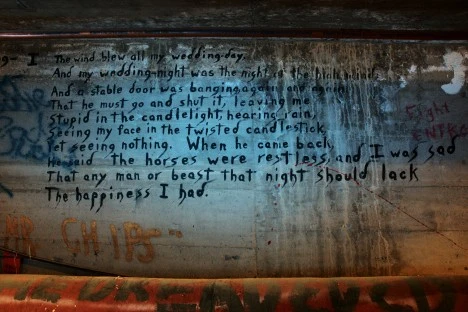 I The wind blew all my wedding-day,
And my wedding-night was the night of the high wind;
And a stable door was banging, again and again,
That he must go and shut it, leaving me
Stupid in the candlelight, hearing rain,
Seeing my face in the twisted candlestick,
Yet seeing nothing. When he came back,
He said the horses were restless, and I was sad
That any man or beast that night should lack
The happiness I had.
Fight
CHIPS